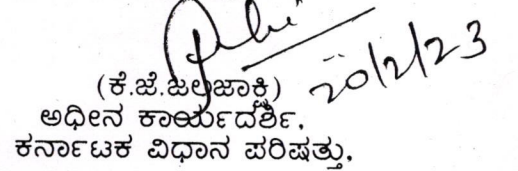 20/2/23
(ಕೆ.ಜೆ.ಜಲಜಾಕ್ಷಿ)
ಅಧೀನ ಕಾರ್ಯದರ್ಶಿ,
ಕರ್ನಾಟಕ ವಿಧಾನ ಪರಿಷತ್ತು.